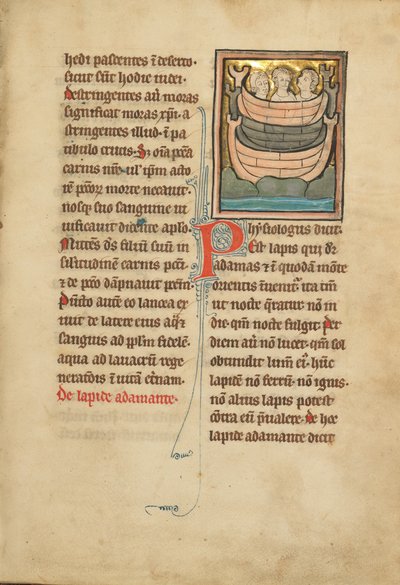 hedi pascentes ĩ deserto·
sicut sũt hodie iudei·
destringentes aũ moras
significat moras xp̃i· a
stringentes illud· ĩ pa
tibulo crucis· oĩa pctã
carnis nr̃e·
morte necauit·
nosq; suo sanguine ui
uificauit dicente aplo·
Mittẽs dš filiũ suũ in
silitudinẽ carnis pcti·
& de pctõ dãpnauit pctm̃·
Pũcto autẽ eo lancea ex
iuit de latere eius aq̃ &
sanguis ad ipl̃m fidelẽ·
aqua ad lauacrũ rege
nerationis ĩ uitã et̃nam·
De lapide adamante·
Physiologus dicit·
Est lapis qui dr̃
adamas & ĩ quodã mõte
orientis ĩuenit̃· ita tm̃
ut nocte q̃ratur nõ in
die· qm̃ nocte fulget· Per
diem aũ nõ lucet· qm̃ sol
obtundit lum̃ ei·
lapidẽ nõ ferrũ· nõ ignis·
nõ alius lapis potest
cõtra eũ p̃ualere· de hoc
lapide adamante dicit